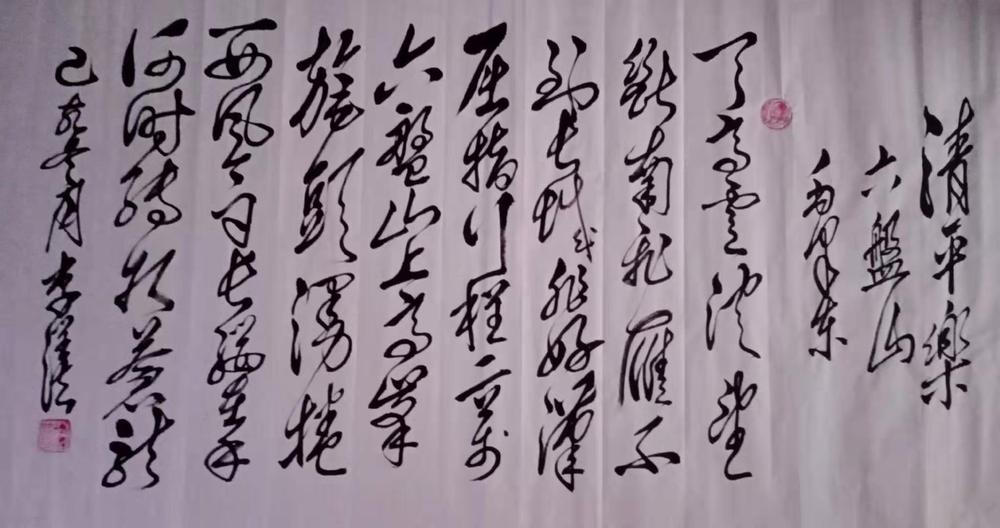 清平樂
六盤山
毛澤東
天高雲淡望
斷南飛雁不
到長城非好漢
屈指行程二萬
六盤山上高峰
旄頭漫捲
西風今日長纓在手
何時縛蒼龍
己亥冬月 李